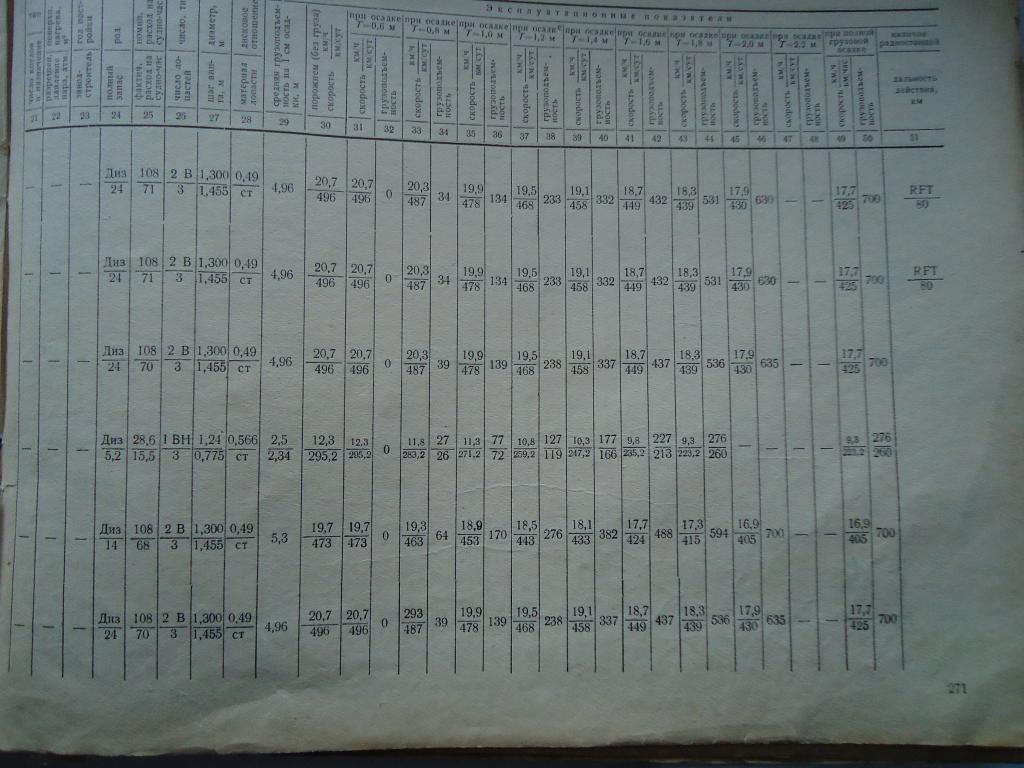 Эксплуатационные показатели
при осадке T=0,6 м при осадке T=0,8 м при осадке T=1,0 м при осадке T=1,2 м при осадке T=1,4 м при осадке T=1,6 м при осадке T=1,8 м при осадке T=2,0 м при осадке T=2,2 м при полной грузовой осадке наличие радиостанций
число котлов и назначение
поверхн. нагрева, м²
год постройки
завод-строитель
род
полный запас
номин. расход на судно-час
фактич. расход на судно-час
число лопастей
диаметр, м
шаг винта, м
дисковое отношение
материал лопасти
средняя грузоподъемность на 1 см осадки, м
порожнем (без груза) скорость км/ч км/сут
скорость км/ч км/сут грузоподъемность скорость км/ч км/сут грузоподъемность скорость км/ч км/сут грузоподъемность скорость км/ч км/сут грузоподъемность скорость км/ч км/сут грузоподъемность скорость км/ч км/сут грузоподъемность скорость км/ч км/сут грузоподъемность скорость км/ч км/сут грузоподъемность скорость км/ч км/сут грузоподъемность скорость км/ч км/час грузоподъемность дальность действия, км
21 22 23 24 25 26 27 28 29 30 31 32 33 34 35 36 37 38 39 40 41 42 43 44 45 46 47 48 49 50 51
— — — Диз 108 2 В 1,300 0,49 4,96 20,7 20,7 0 20,3 34 19,9 134 19,5 233 19,1 332 18,7 432 18,3 531 17,9 630 — — 17,7 700 RFT
24 71 3 1,455 ст 496 496 487 478 468 458 449 439 430 425 80
— — — Диз 108 2 В 1,300 0,49 4,96 20,7 20,7 0 20,3 34 19,9 134 19,5 233 19,1 332 18,7 432 18,3 531 17,9 630 — — 17,7 700 RFT
24 71 3 1,455 ст 496 496 487 478 468 458 449 439 430 425 80
— — — Диз 108 2 В 1,300 0,49 4,96 20,7 20,7 0 20,3 39 19,9 139 19,5 238 19,1 337 18,7 437 18,3 536 17,9 635 — — 17,7 700
24 70 3 1,455 ст 496 496 487 478 468 458 449 439 430 425
— — — Диз 28,6 1 ВН 1,24 0,566 2,5 12,3 12,3 0 11,8 27 11,3 77 10,8 127 10,3 177 9,8 227 9,3 276 — — — — 9,3 276
5,2 15,5 3 0,775 ст 2,34 295,2 295,2 283,2 26 271,2 72 259,2 119 247,2 166 235,2 213 223,2 260 223,2 260
— — — Диз 108 2 В 1,300 0,49 5,3 19,7 19,7 0 19,3 64 18,9 170 18,5 276 18,1 382 17,7 488 17,3 594 16,9 700 — — 16,9 700
14 68 3 1,455 ст 473 473 463 453 443 433 424 415 405 405
— — — Диз 108 2 В 1,300 0,49 4,96 20,7 20,7 0 293 39 19,9 139 19,5 238 19,1 337 18,7 437 18,3 536 17,9 635 — — 17,7 700
24 70 3 1,455 ст 496 496 487 478 468 458 449 439 430 425
271